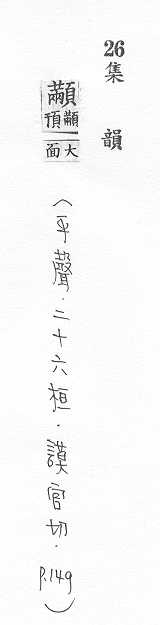 26集韻
顢
顢頇大面
(平聲.二十六桓.謨官切.P.149)